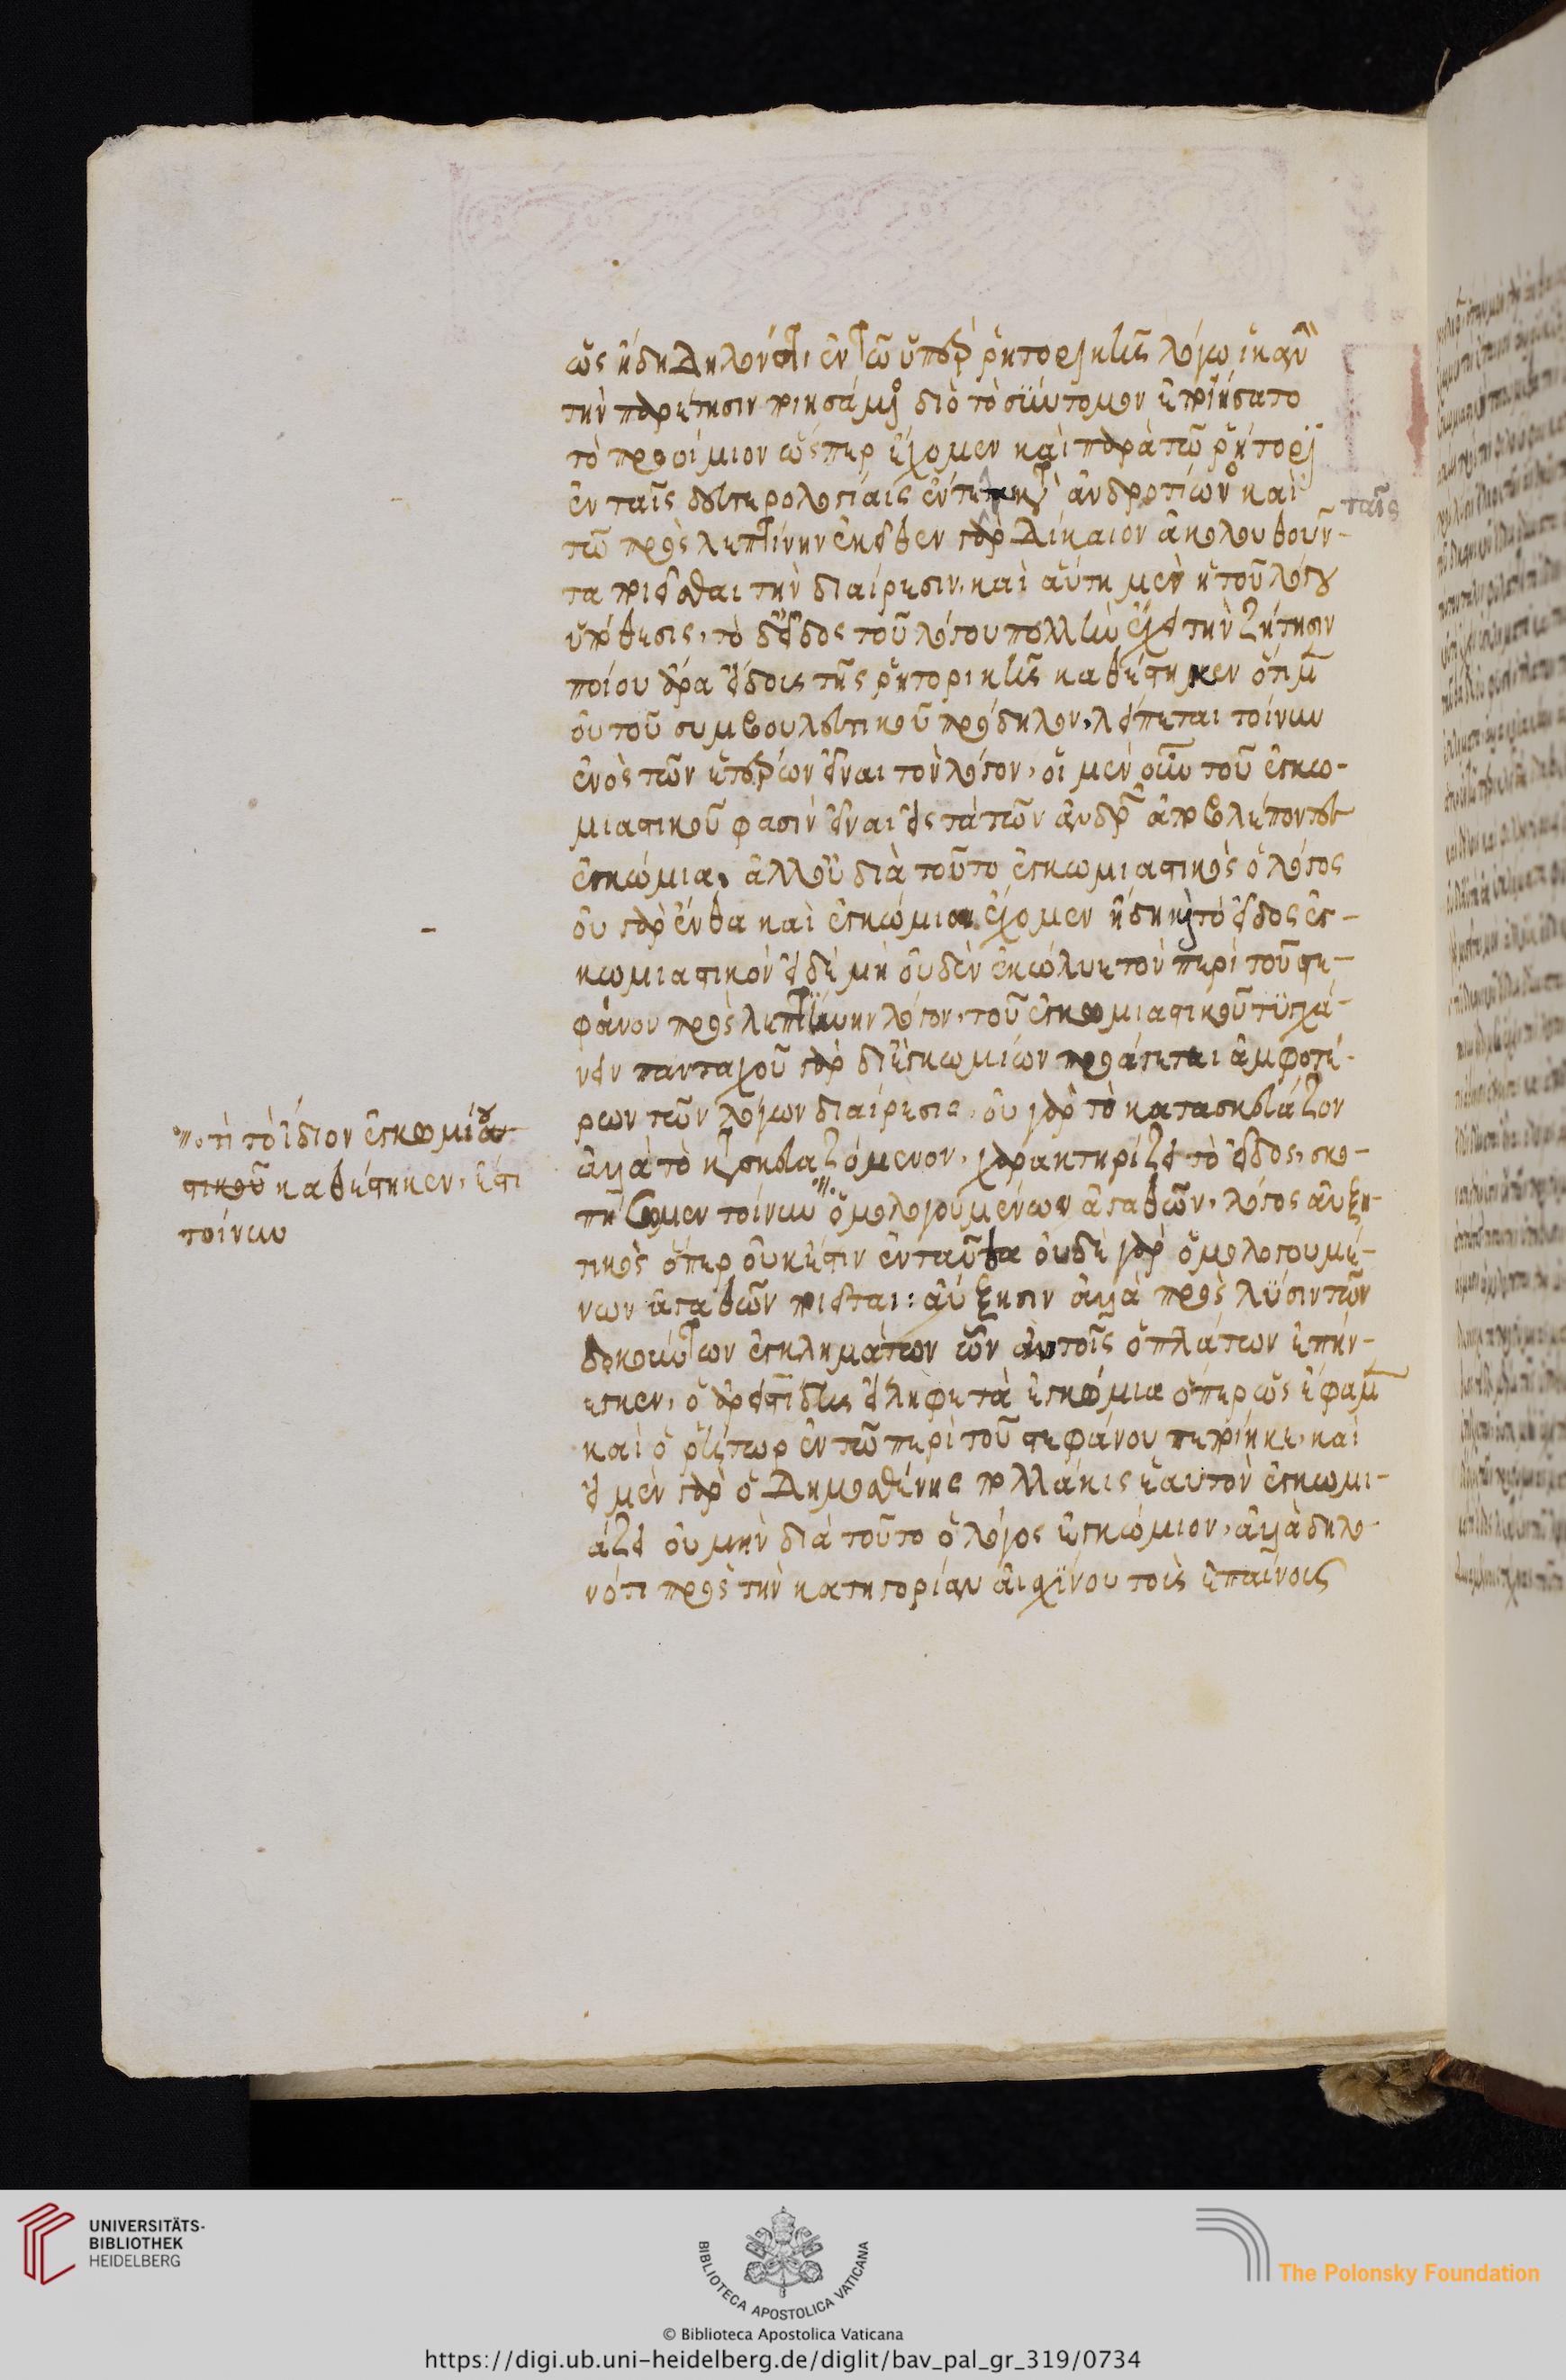 ὡς ἤδη δηλονότι ἐν τῷ ὑπὲρ ῥητορικῆς λόγω ἱκανὴν
τὴν παραίτησιν ποιησάμενος διὸ τὸ σύντομον ἐποιήσατο
τὸ προοίμιον ὥσπερ ἔχομεν καὶ παρὰ τῶ ῥήτορι
ἐν ταῖς δευτερολογίαις ἐν τε τῶ κατὰ ἀνδροτίωνος καὶ
ταῖς
τῶ πρὸς λεπτίνην ἐκεῖθεν γὰρ δίκαιον ἀκολουθοῦν-
τα ποιεῖσθαι τὴν διαίρεσιν. καὶ αὕτη μὲν ἡ τοῦ λόγου
ὑπόθεσις, τὸ δὲ εἶδος τοῦ λόγου πολλὴν ἔχει τὴν ζήτησιν
ποίου ἄρα εἴδους τῆς ῥητορικῆς καθέστηκεν ὅτι μὲν
οὐ τοῦ συμβουλευτικοῦ πρόδηλον, λείπεται τοίνυν
ἑνὸς τῶν ἑτέρων εἶναι τὸν λόγον, οἱ μὲν οὖν τοῦ ἐγκω-
μιαστικοῦ φασὶν εἶναι εἰς τὰ τῶν ἀνδρῶν ἀποβλέποντες
ἐγκώμια, ἀλλ' οὐ διὰ τοῦτο ἐγκωμιαστικὸς ὁ λόγος
οὐ γὰρ ἔνθα καὶ ἐγκώμιον ἔχομεν ἤδη καὶ τὸ εἶδος ἐγ-
κωμιαστικόν εἰ δὲ μὴ οὐδὲν ἐκώλυε τὸν περὶ τοῦ στε-
φάνου πρὸς λεπτίνην λόγον, τοῦ ἐγκωμιαστικοῦ τυγχά-
νειν πανταχοῦ γὰρ δι' ἐγκωμίων προάγεται ἀμφοτέ-
ρων τῶν λόγων διαίρεσις. οὐ γὰρ τὸ κατασκευάζον
ἀλλὰ τὸ κατασκευαζόμενον, χαρακτηρίζει τὸ εἶδος, σκο-
πήσωμεν τοίνυν ὁμολογουμένων ἀγαθῶν, λόγος αὐξη-
τικὸς ὅπερ οὐκ ἔστιν ἐνταῦθα οὐδὲ γὰρ ὁμολογουμέ-
νων ἀγαθῶν ποιεῖται: αὔξησιν ἀλλὰ πρὸς λύσιν τῶν
δοκούντων ἐγκλημάτων ὧν αὐτοῖς ὁ πλάτων ἐπήν-
εγκεν, ὁ ἀριστείδης εἴληφε τὰ ἐγκώμια ὅπερ ὡς ἔφαμεν
καὶ ὁ ῥήτωρ ἐν τῶ περὶ τοῦ στεφάνου πεποίηκε. καὶ
εἰ μὲν γὰρ ὁ Δημοσθένης πολλάκις ἑαυτὸν ἐγκωμι-
άζει οὐ μὴν διὰ τοῦτο ὁ λόγος ἐγκώμιον, ἀλλὰ δηλο-
νότι πρὸς τὴν κατηγορίαν αἰσχίνου τοῖς ἐπαίνοις
τί τὸ ἴδιον ἐγκωμίου
στικοῦ καθέστηκεν, ἔστι
τοίνυν
UNIVERSITÄTS-
BIBLIOTHEK
HEIDELBERG
BIBLIOTECA APOSTOLICA VATICANA
The Polonsky Foundation
© Biblioteca Apostolica Vaticana
https://digi.ub.uni-heidelberg.de/diglit/bav_pal_gr_319/0734